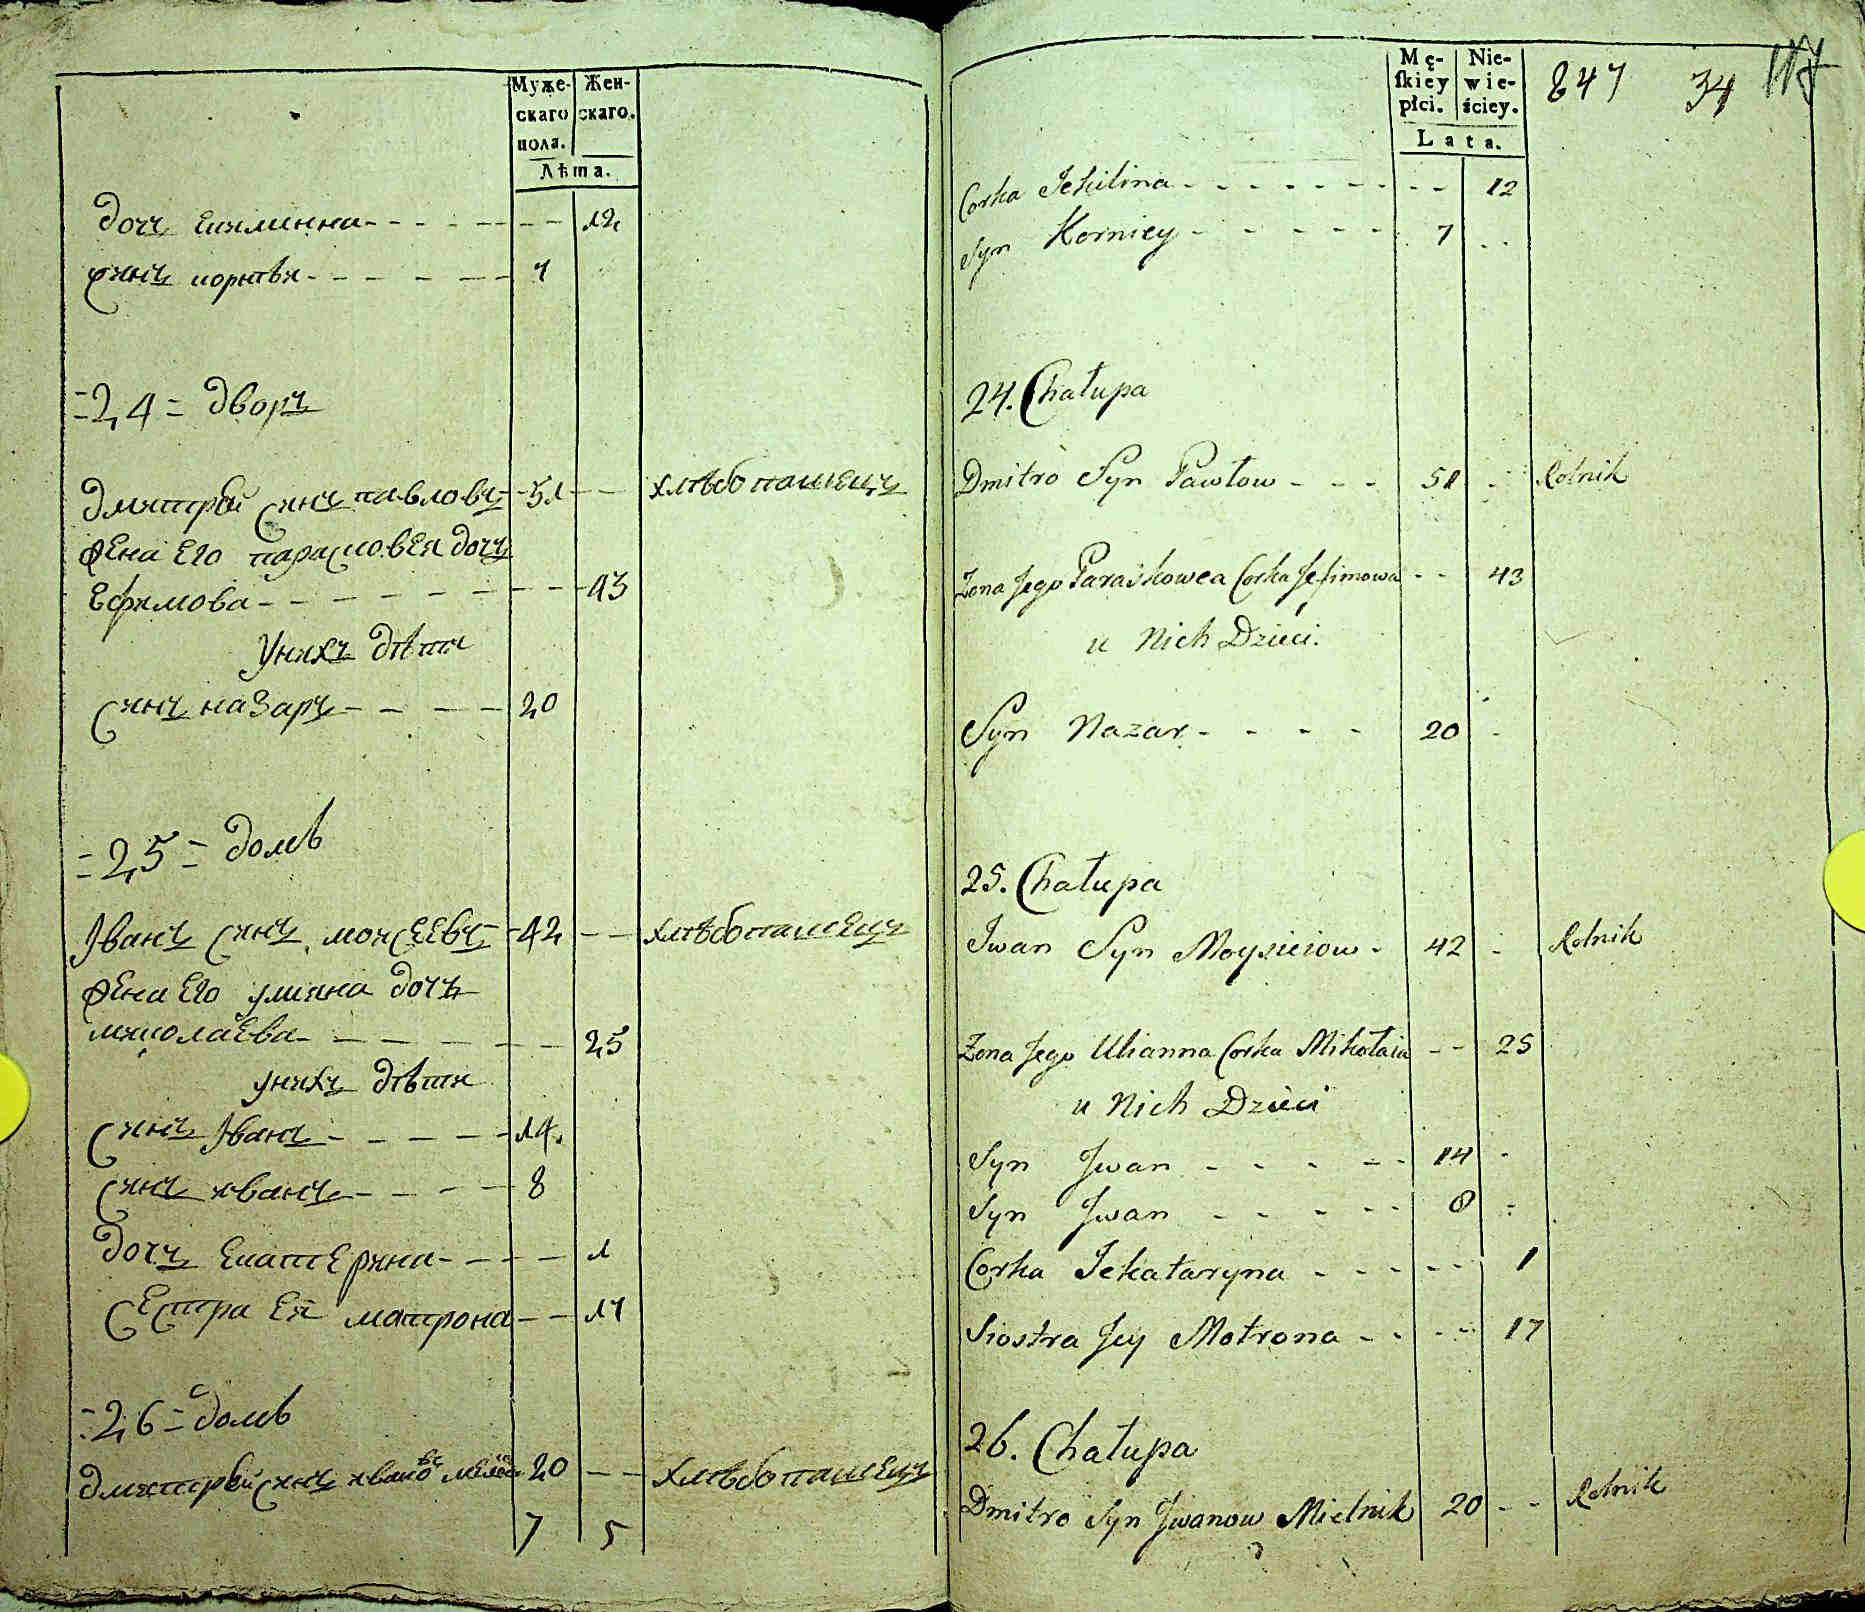 Муже-
скаго
пола.
Жен-
скаго.
Лѣта.
дочъ Екилинна - - - - - - - 12
сынъ корнѣи - - - - - - 7
= 24 = дворъ
дмитрѣй сынъ павловъ - 51 - - хлѣбопашецъ
жена Его парасковея дочъ
Ефимова - - - - - - - - 43
у нихъ дѣти
сынъ назаръ - - - - - 20
= 25 = домъ
Іванъ сынъ мойсеевъ - 42 - - хлѣбопашецъ
жена Его улияна дочъ
миколаева - - - - - - - 25
у нихъ дѣти
сынъ Іванъ - - - - - 14.
сынъ иванъ - - - - - 8
дочъ Екатерина - - - - - 1
сестра Ея матрона - - 17
= 26 = домъ
дмитрѣй сынъ 20 - - хлѣбопашецъ
7 5
Mę-
ſkiey
płci.
Nie-
wie-
ściey.
Lata.
847 34
Corka Jekilina - - - - - - - - - 12
Syn Korniey - - - - - - 7 - -
24. Chałupa
Dmitro Syn Pawłow - - - 51 - Rolnik
Zona Jego Paraskowea Corka Jefimowa - - 43
u Nich Dzieci.
Syn Nazar - - - - 20 -
25. Chałupa
Jwan Syn Moysieiow - 42 - Rolnik
Zona Jego Ulianna Corka Mikołaia - - 25
u Nich Dzieci
Syn Jwan - - - - - 14 -
Syn Jwan - - - - - 8 -
Corka Jekataryna - - - - - - 1
Siostra Jey Motrona - - - - 17
26. Chałupa
Dmitro Syn Jwanow Mielnik 20 - - Rolnik